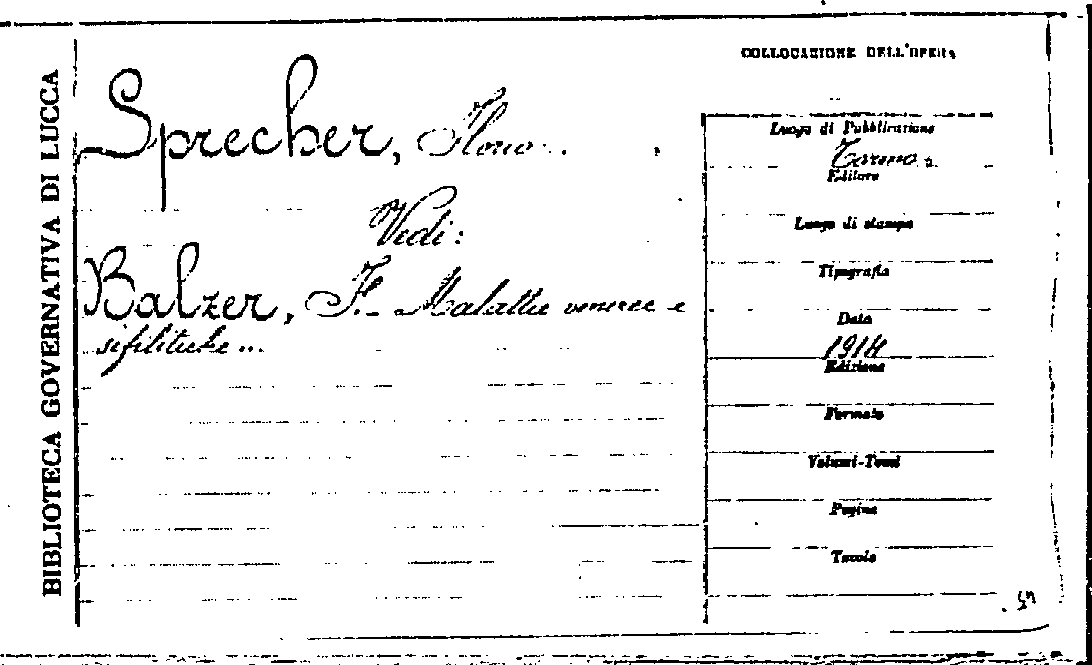 BIBLIOTECA GOVERNATIVA DI LUCCA
Sprecher, Floro.
Vedi:
Balzer, F. - Malattie veneree e
sifilitiche...
COLLOCAZIONE DELL'OPERA
Luogo di Pubblicazione
Torino.
Editore
Luogo di stampa
Tipografia
Data
1914
Edizione
Formato
Volumi-Tomi
Pagine
Tavole